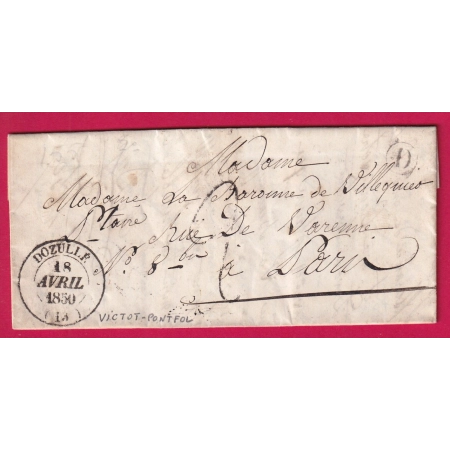 D
Madame
Madame La Baronne de Villequier
Rue De Varenne
N° 8 bis
à Paris
DOZULLE
18
AVRIL
1850
(13)
VICTOT-PONTFOL